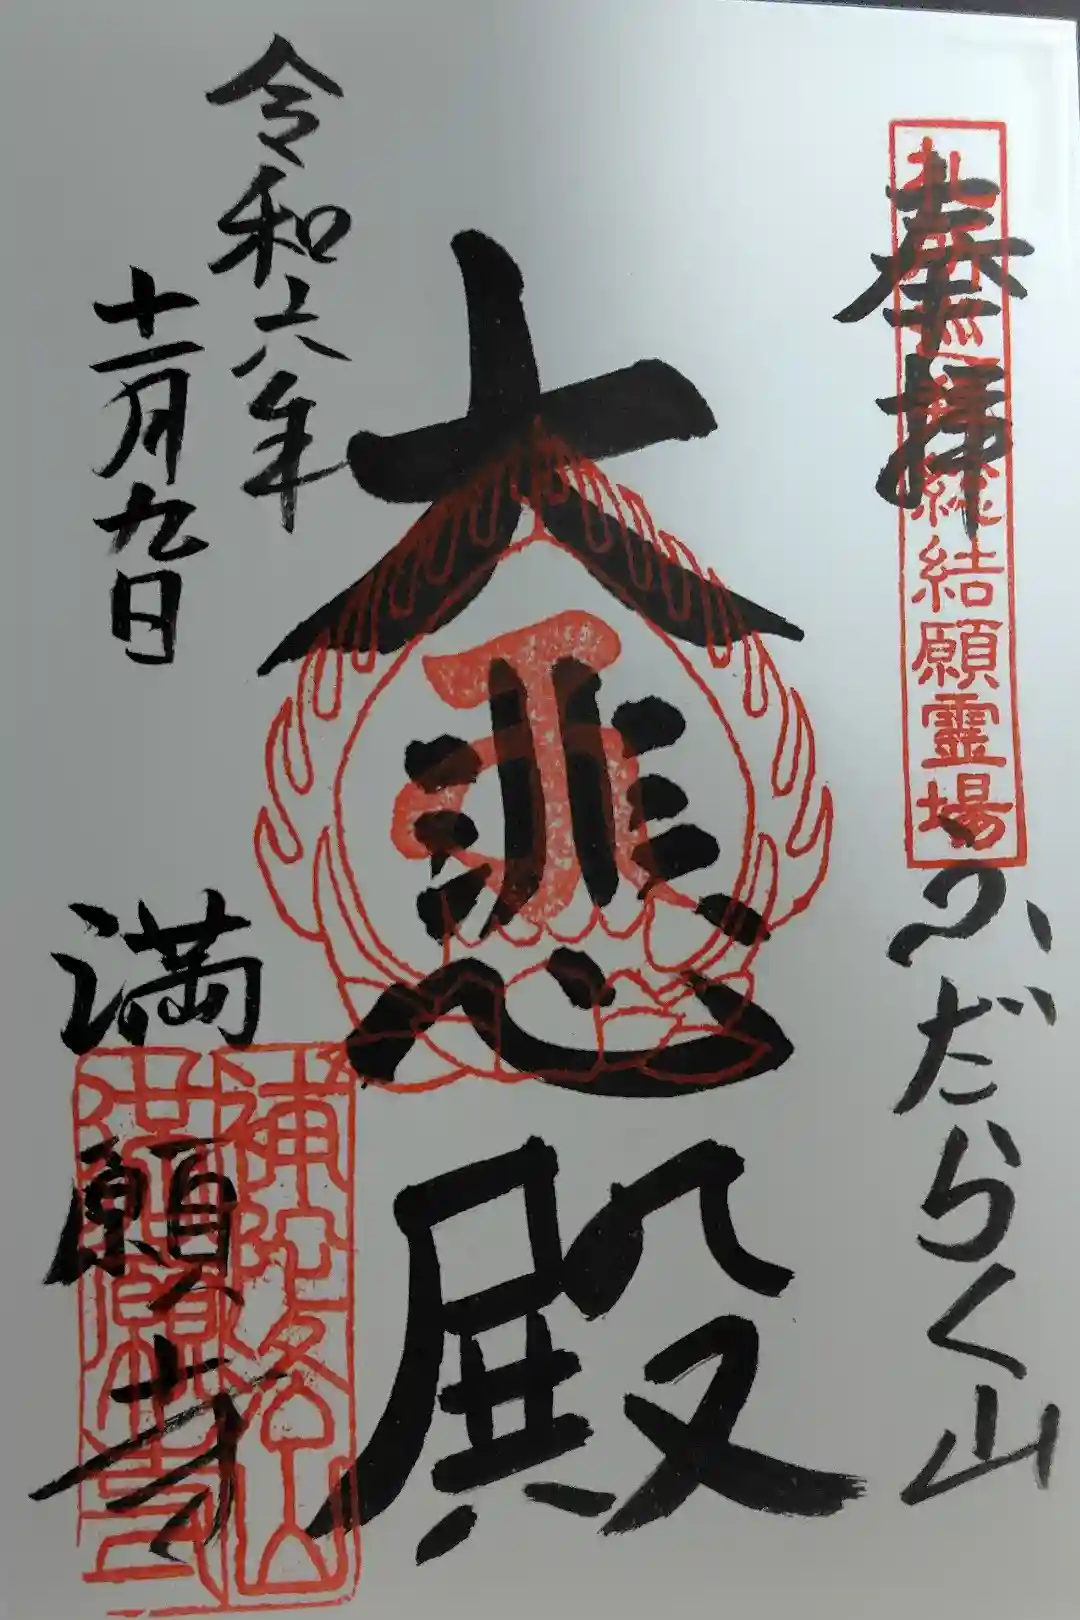 奉拝
札所巡礼総結願霊場
ふだらく山
大悲殿
令和六年
十一月九日
満願寺
補陀洛山
満願寺